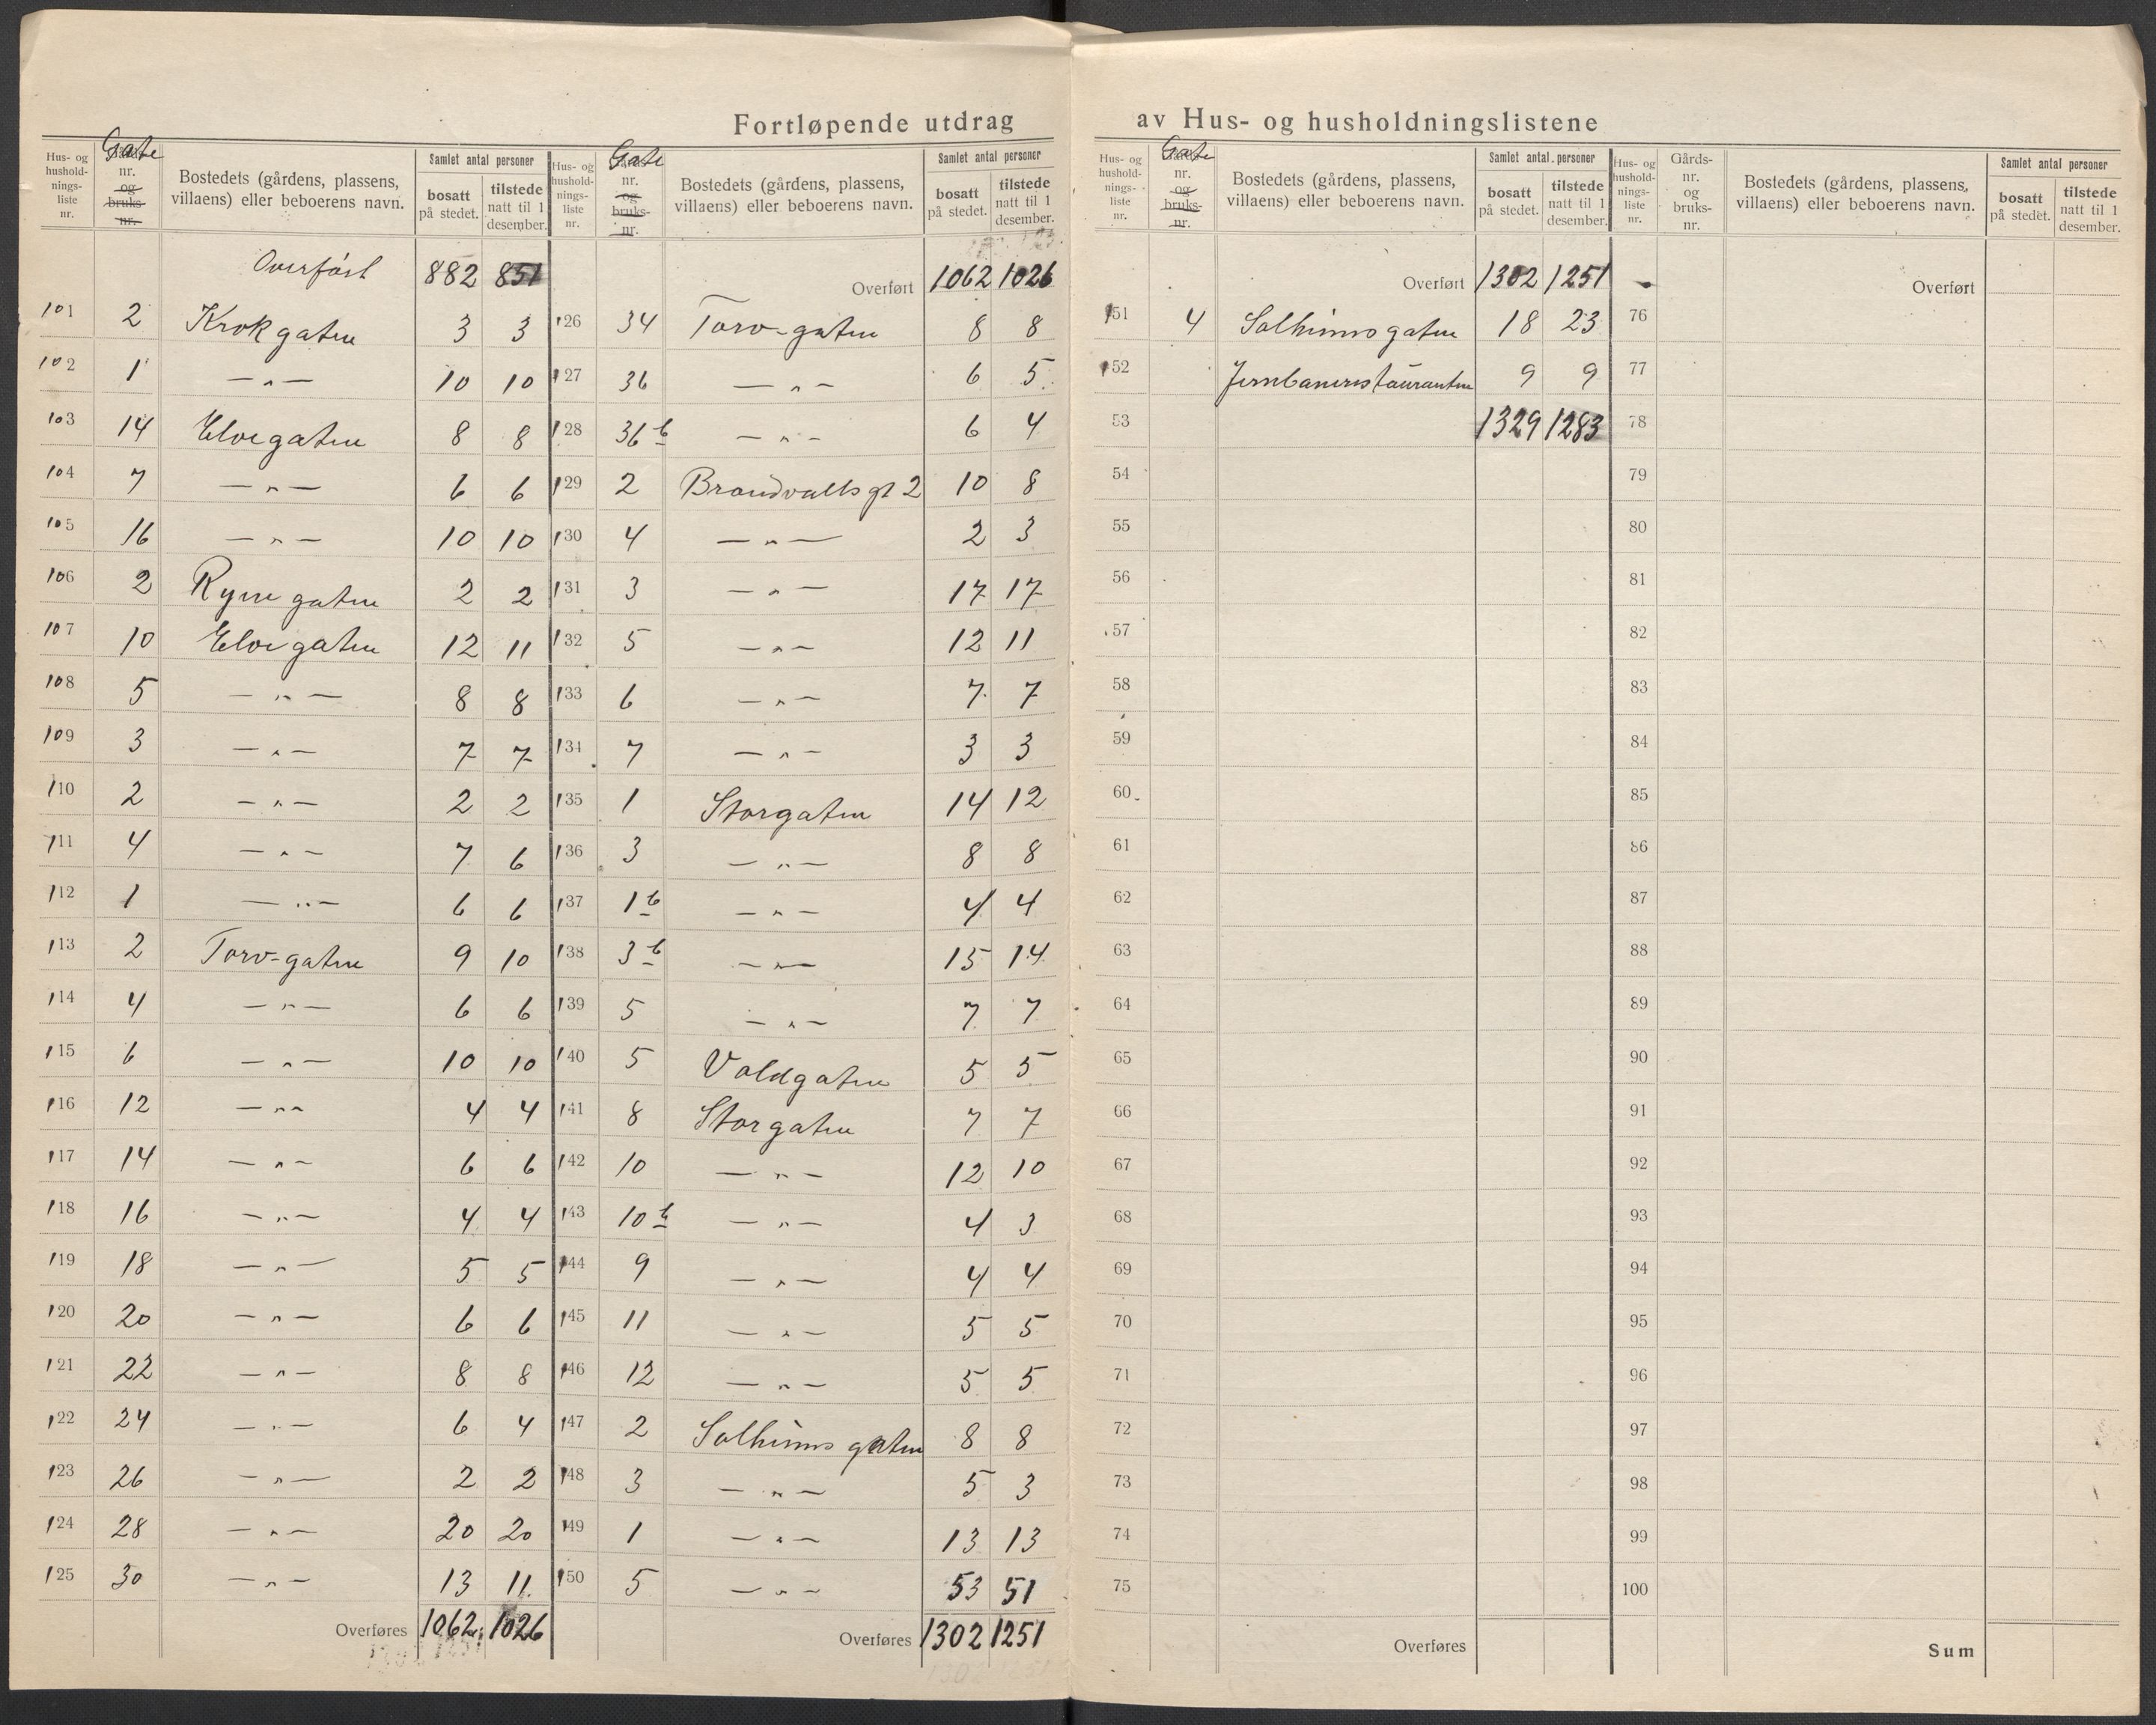 Fortløpende utdrag av Hus- og husholdningslistene
Hus- og husholdnings-liste nr. | Gate nr. og bruks-nr. | Bostedets (gårdens, plassens, villaens) eller beboerens navn. | Samlet antal personer bosatt på stedet. | tilstede natt til 1 desember.
Overført 882 851
101 2 Krokgaten 3 3
102 1 — „ — 10 10
103 14 Elvegaten 8 8
104 7 — „ — 6 6
105 16 — „ — 10 10
106 2 Ryengaten 2 2
107 10 Elvegaten 12 11
108 5 — „ — 8 8
109 3 — „ — 7 7
110 2 — „ — 2 2
111 4 — „ — 7 6
112 1 — „ — 6 6
113 2 Torv-gaten 9 10
114 4 — „ — 6 6
115 6 — „ — 10 10
116 12 — „ — 4 4
117 14 — „ — 6 6
118 16 — „ — 4 4
119 18 — „ — 5 5
120 20 — „ — 6 6
121 22 — „ — 8 8
122 24 — „ — 6 4
123 26 — „ — 2 2
124 28 — „ — 20 20
125 30 — „ — 13 11
Overføres 1062 1026
Hus- og husholdnings-liste nr. | Gate nr. og bruks-nr. | Bostedets (gårdens, plassens, villaens) eller beboerens navn. | Samlet antal personer bosatt på stedet. | tilstede natt til 1 desember.
Overført 1062 1026
126 34 Torv-gaten 8 8
127 36 — „ — 6 5
128 36 b — „ — 6 4
129 2 Brandvalls gt 2 10 8
130 4 — „ — 2 3
131 3 — „ — 17 17
132 5 — „ — 12 11
133 6 — „ — 7 7
134 7 — „ — 3 3
135 1 Storgaten 14 12
136 3 — „ — 8 8
137 1 b — „ — 4 4
138 3 b — „ — 15 14
139 5 — „ — 7 7
140 5 Voldgaten 5 5
141 8 Storgaten 7 7
142 10 — „ — 12 10
143 10 b — „ — 4 3
144 9 — „ — 4 4
145 11 — „ — 5 5
146 12 — „ — 5 5
147 2 Solheims gaten 8 8
148 3 — „ — 5 3
149 1 — „ — 13 13
150 5 — „ — 53 51
Overføres 1302 1251
Hus- og husholdnings-liste nr. | Gate nr. og bruks-nr. | Bostedets (gårdens, plassens, villaens) eller beboerens navn. | Samlet antal personer bosatt på stedet. | tilstede natt til 1 desember.
Overført 1302 1251
151 4 Solheimsgaten 18 23
152 Jernbanerestauranten 9 9
53 1329 1283
54
55
56
57
58
59
60
61
62
63
64
65
66
67
68
69
70
71
72
73
74
75
Overføres
Hus- og husholdnings-liste nr. | Gårds-nr. og bruks-nr. | Bostedets (gårdens, plassens, villaens) eller beboerens navn. | Samlet antal personer bosatt på stedet. | tilstede natt til 1 desember.
Overført
76
77
78
79
80
81
82
83
84
85
86
87
88
89
90
91
92
93
94
95
96
97
98
99
100
Sum